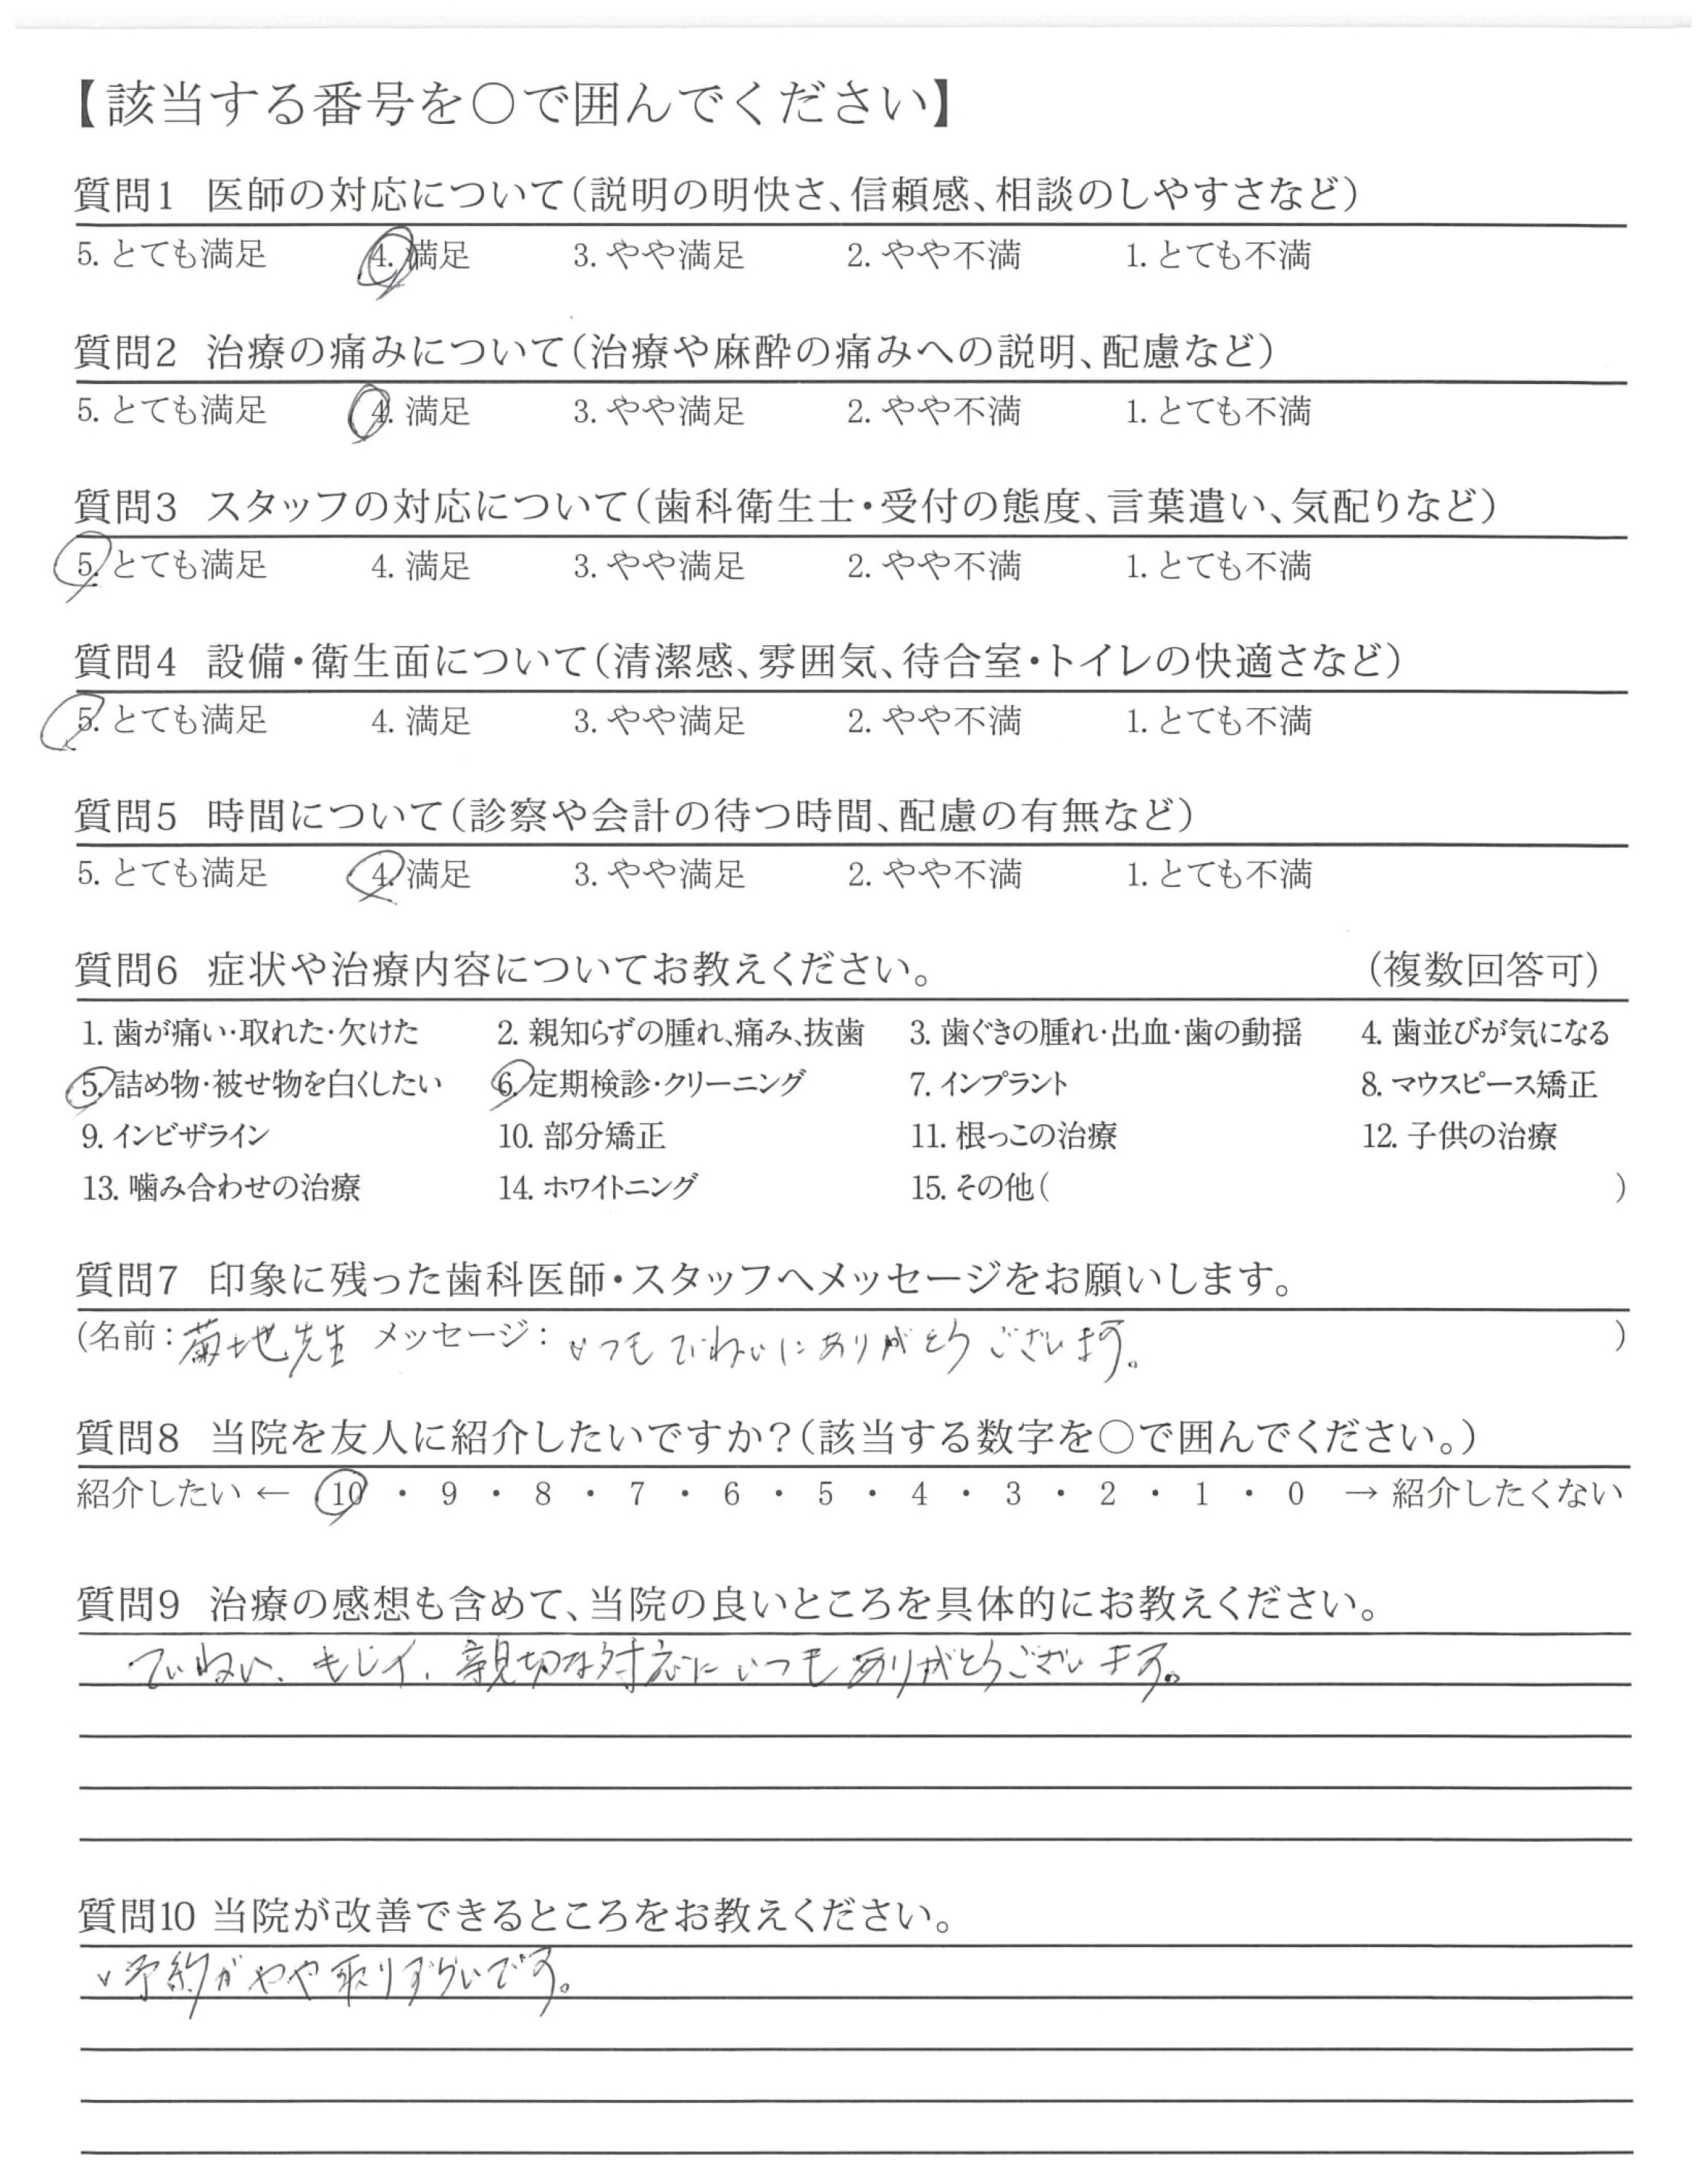 【該当する番号を○で囲んでください】
質問1 医師の対応について(説明の明快さ、信頼感、相談のしやすさなど)
5. とても満足 4. 満足 3. やや満足 2. やや不満 1. とても不満
質問2 治療の痛みについて(治療や麻酔の痛みへの説明、配慮など)
5. とても満足 4. 満足 3. やや満足 2. やや不満 1. とても不満
質問3 スタッフの対応について(歯科衛生士・受付の態度、言葉遣い、気配りなど)
5. とても満足 4. 満足 3. やや満足 2. やや不満 1. とても不満
質問4 設備・衛生面について(清潔感、雰囲気、待合室・トイレの快適さなど)
5. とても満足 4. 満足 3. やや満足 2. やや不満 1. とても不満
質問5 時間について(診察や会計の待つ時間、配慮の有無など)
5. とても満足 4. 満足 3. やや満足 2. やや不満 1. とても不満
質問6 症状や治療内容についてお教えください。 (複数回答可)
1. 歯が痛い・取れた・欠けた 2. 親知らずの腫れ、痛み、抜歯 3. 歯ぐきの腫れ・出血・歯の動揺 4. 歯並びが気になる
5. 詰め物・被せ物を白くしたい 6. 定期検診・クリーニング 7. インプラント 8. マウスピース矯正
9. インビザライン 10. 部分矯正 11. 根っこの治療 12. 子供の治療
13. 噛み合わせの治療 14. ホワイトニング 15. その他( )
質問7 印象に残った歯科医師・スタッフへメッセージをお願いします。
(名前:菊地先生 メッセージ:いつもていねいにありがとうございます。 )
質問8 当院を友人に紹介したいですか?(該当する数字を○で囲んでください。)
紹介したい ← 10 ・ 9 ・ 8 ・ 7 ・ 6 ・ 5 ・ 4 ・ 3 ・ 2 ・ 1 ・ 0 → 紹介したくない
質問9 治療の感想も含めて、当院の良いところを具体的にお教えください。
ていねい、キレイ、親切な対応にいつもありがとうございます。
質問10 当院が改善できるところをお教えください。
・予約がやや取りずらいです。